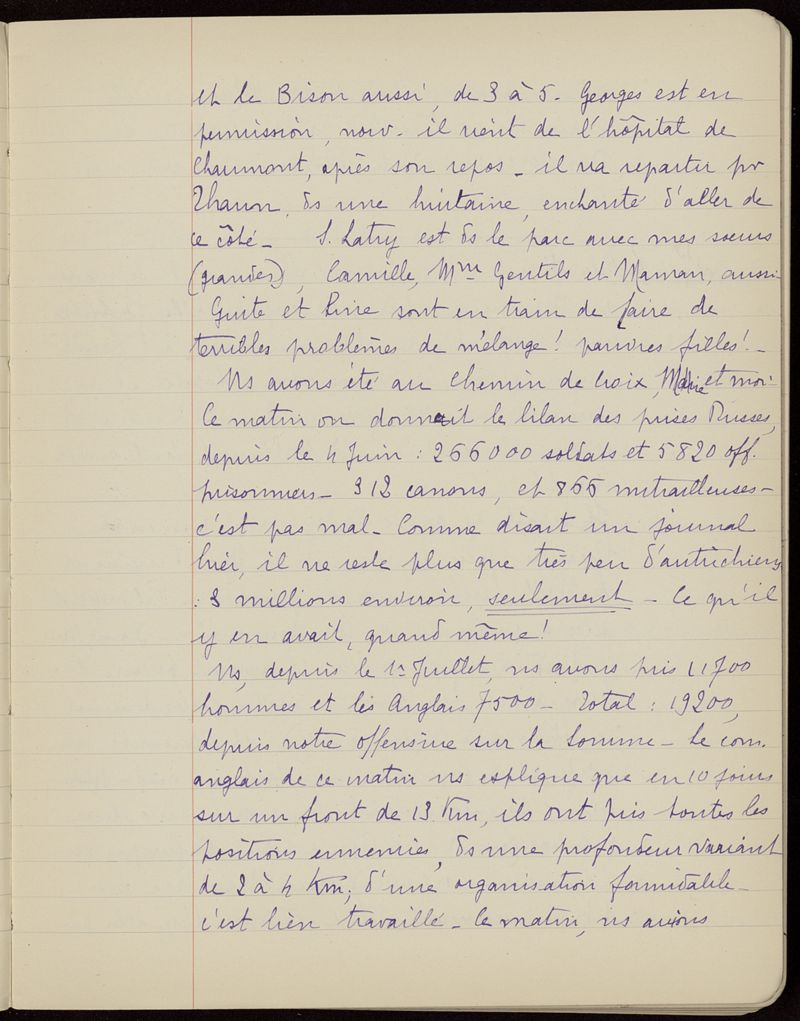 et le Bison aussi, de 3 à 5. Georges est en
permission, nouv. il vient de l'hôpital de
Chaumont, après son repos _ il va repartir pr
Thann, ds une huitaine, enchanté d'aller de
ce côté _ S. Latry est ds le parc avec mes soeurs
(grandes), Camille, Mme Gentils et Maman, aussi
Guite et Line sont en train de faire de
terribles problèmes de mélange! pauvres filles! _
Ns avons été au chemin de Croix, et moi.
Ce matin on donnait le bilan des prises Russes,
depuis le 4 Juin : 266000 soldats et 5820 off.
prisonniers _ 312 canons, et 866 mitrailleuses _
c'est pas mal _ Comme disait un journal
hier, il ne reste plus que très peu d'autrichiens
: 3 millions environ, seulement _ Ce qu'il
y en avait, quand même!
Ns, depuis le 1r Juillet, ns avons pris 11700
hommes et les Anglais 7500 _ Total : 19200,
depuis notre offensive sur la Somme _ Le com.
anglais de ce matin ns explique que en 10 jours
sur un front de 13 Km, ils ont pris toutes les
positions ennemies, ds une profondeur variant
de 2 à 4 Km, d'une organisation formidable _
c'est bien travaillé _ Ce matin, ns avions